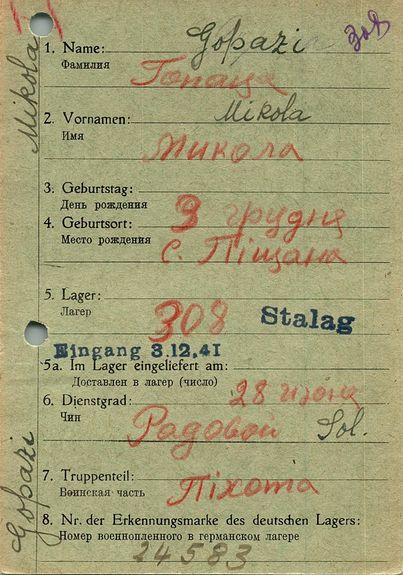 308
1. Name: Gopazi
Фамилия Гопаца
2. Vornamen: Mikola
Имя Микола
3. Geburtstag:
День рождения 3 грудня
4. Geburtsort:
Место рождения с. Піщана
5. Lager:
Лагер 308 Stalag
Eingang 3.12.41
5a. Im Lager eingeliefert am:
Доставлен в лагер (число) 28
6. Dienstgrad:
Чин Радовой Sol.
7. Truppenteil:
Воинская часть Піхота
8. Nr. der Erkennungsmarke des deutschen Lagers:
Номер военнопленного в германском лагере
24583
Mikola
Gopazi